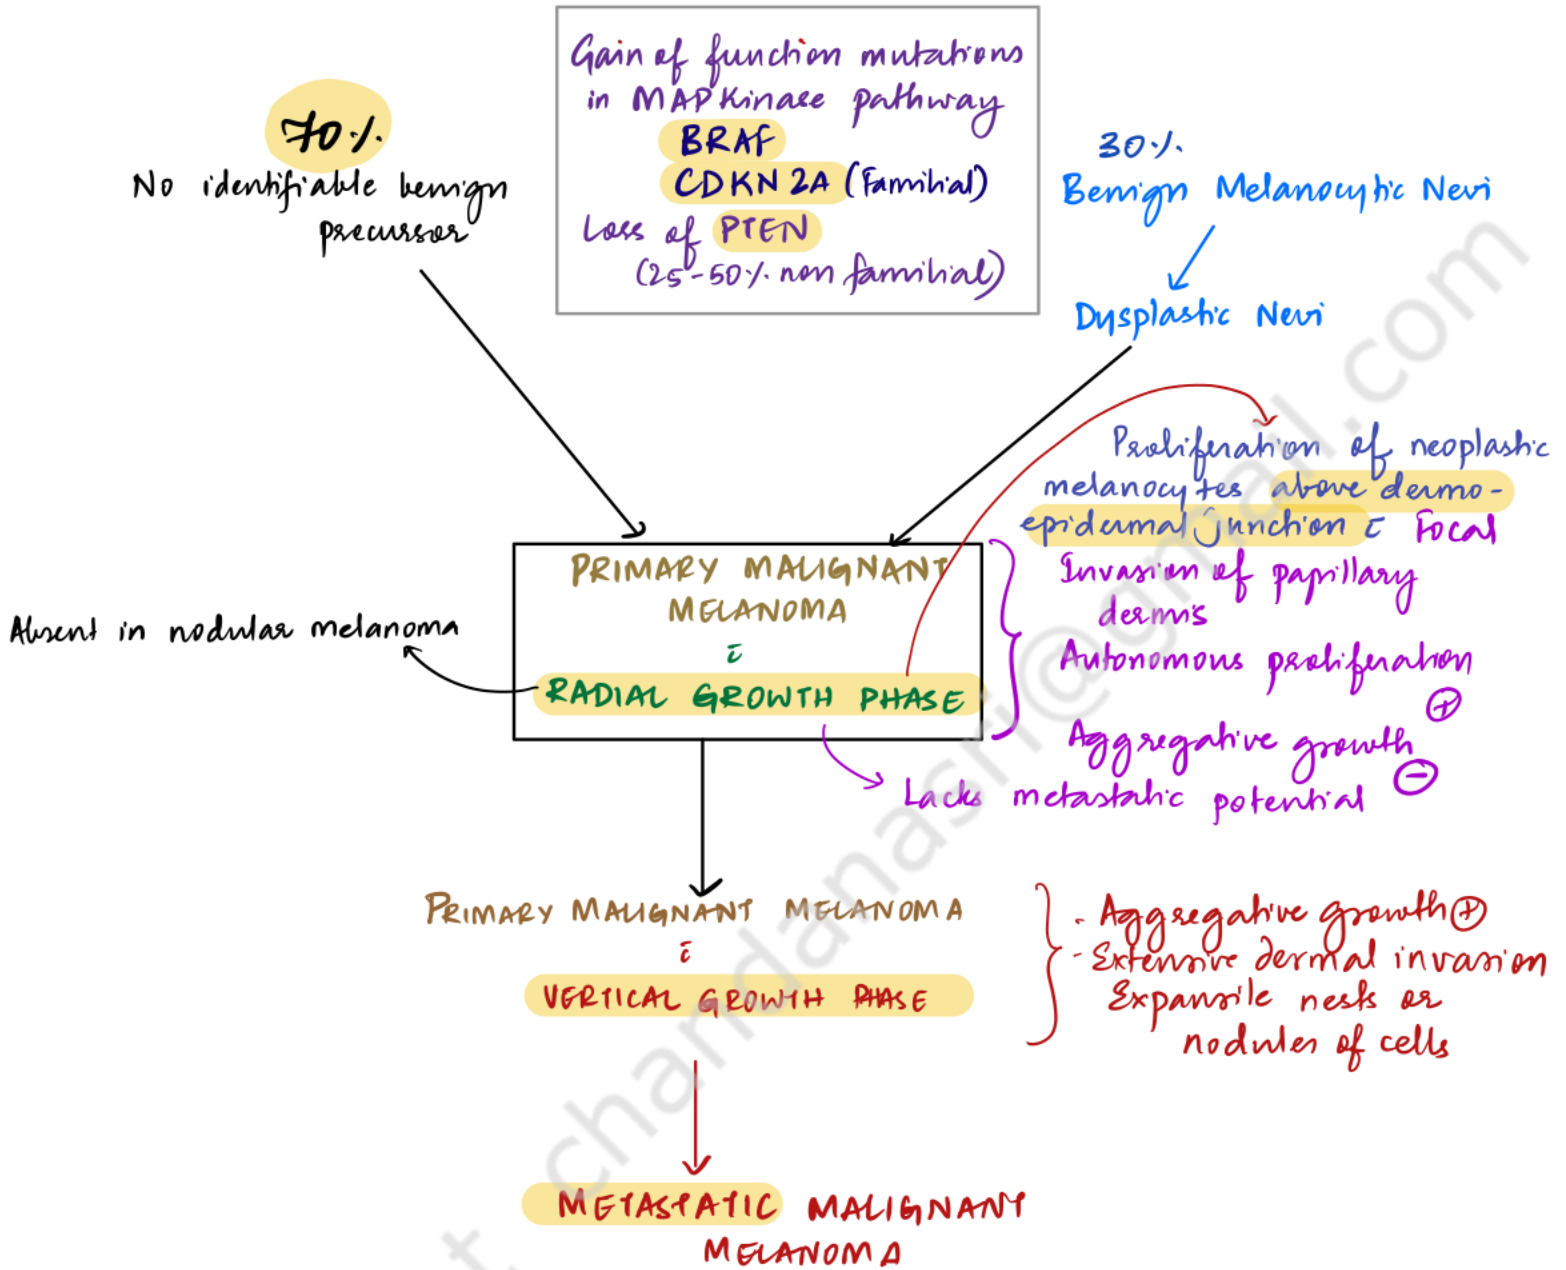 Gain of function mutations
in MAP Kinase pathway
BRAF
CDKN 2A (Familial)
Loss of PTEN
(25-50% non familial)
70%
No identifiable benign
precursor
30%
Benign Melanocytic Nevi
Dysplastic Nevi
Proliferation of neoplastic
melanocytes above dermo-
epidermal junction c̄ Focal
Invasion of papillary
dermis
Autonomous proliferation
⊕
Aggregative growth
⊖
Lacks metastatic potential
PRIMARY MALIGNANT
MELANOMA
c̄
RADIAL GROWTH PHASE
Absent in nodular melanoma
PRIMARY MALIGNANT MELANOMA
c̄
VERTICAL GROWTH PHASE
- Aggregative growth ⊕
- Extensive dermal invasion
Expansile nests or
nodules of cells
METASTATIC MALIGNANT
MELANOMA
chandanasri@gmail.com